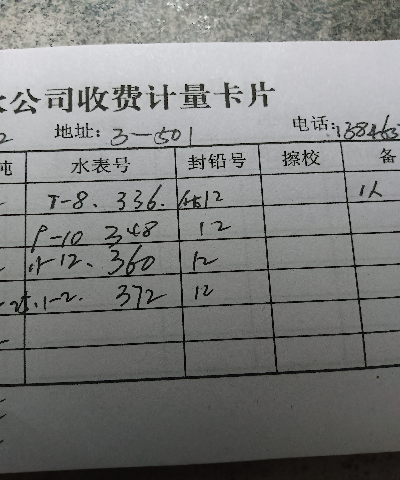 公司收费计量卡片
2 地址: 3-501 电话: 138463
吨 水表号 封铅号 擦校 备
T-8. 336. 12 1人
9-10 348 12
11-12. 360 12
25.1-2. 372 12